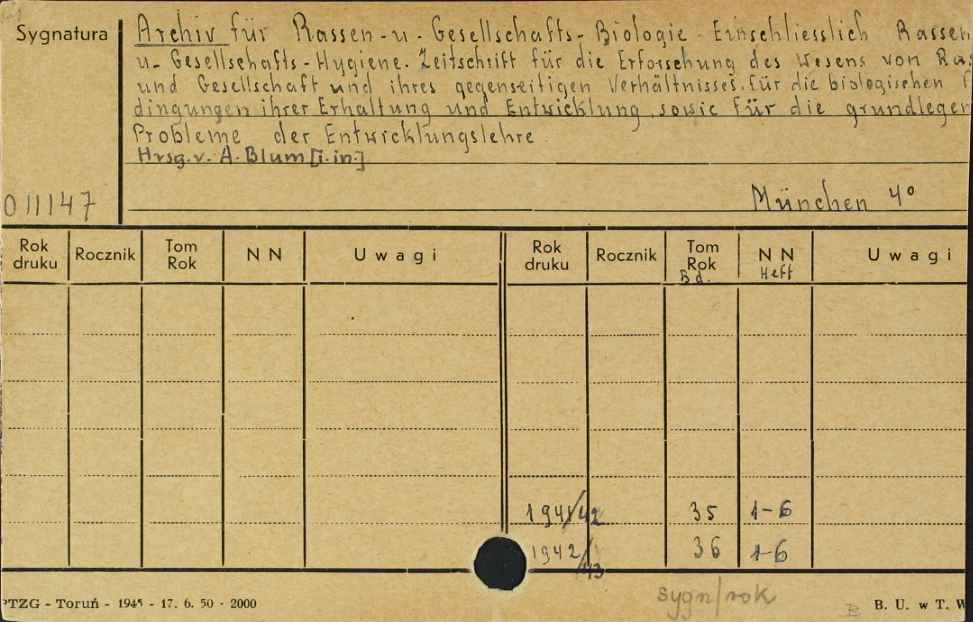 Sygnatura
Archiv für Rassen-u-Gesellschafts-Biologie Einschliesslich Rassen
u-Gesellschafts-Hygiene. Zeitschrift für die Erforschung des Wesens von Ras
und Gesellschaft und ihres gegenseitigen Verhältnisses. für die biologischen
dingungen ihrer Erhaltung und Entwicklung sowie für die grundlegen
Probleme der Entwicklungslehre
Hrsg. v. A. Blum [i. in.]
011147
München 4°
Rok druku Rocznik Tom Rok N N Uwagi Rok druku Rocznik Tom Rok N N Uwagi
Bd. Heft
1941/42 35 1-6
1942/43 36 1-6
sygn/rok
PTZG - Toruń - 1945 - 17. 6. 50 · 2000
B. U. w T. W